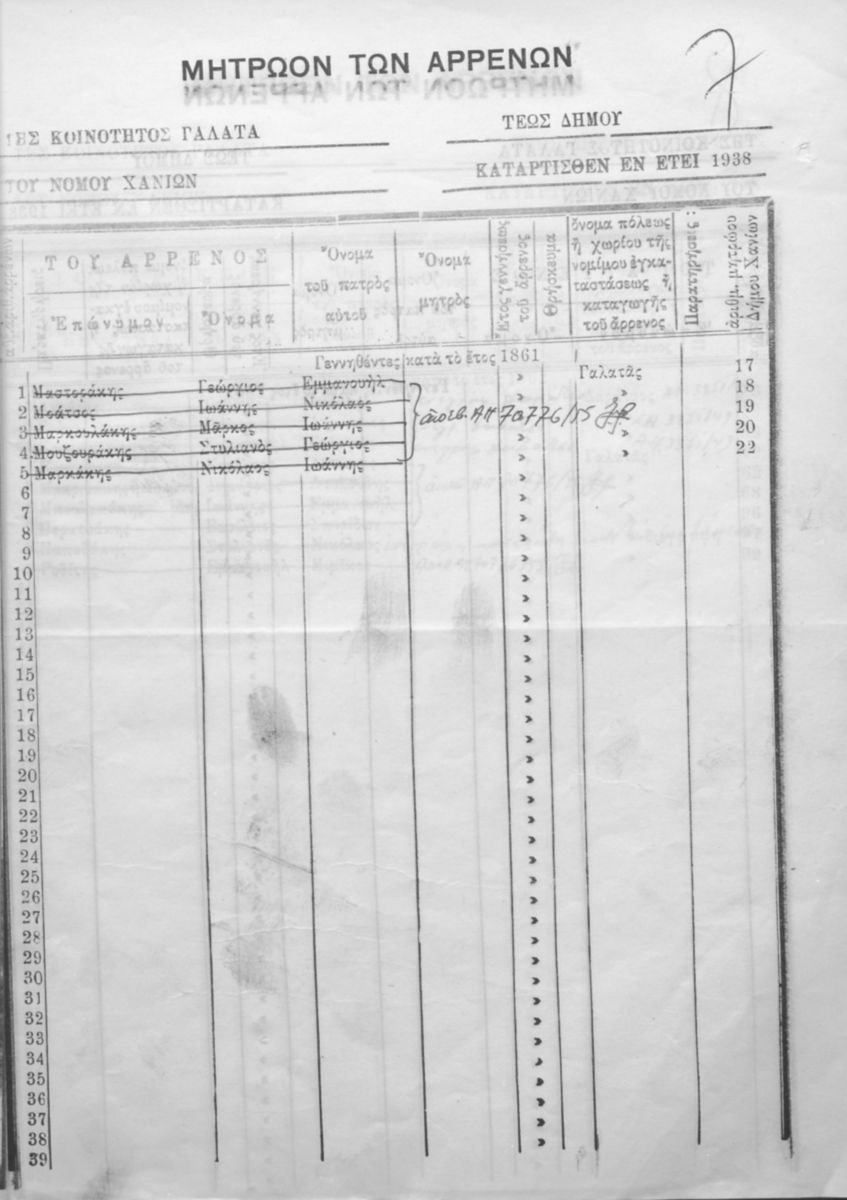 7
ΜΗΤΡΩΟΝ ΤΩΝ ΑΡΡΕΝΩΝ
ΤΗΣ ΚΟΙΝΟΤΗΤΟΣ ΓΑΛΑΤΑ
ΤΕΩΣ ΔΗΜΟΥ
ΤΟΥ ΝΟΜΟΥ ΧΑΝΙΩΝ
ΚΑΤΑΡΤΙΣΘΕΝ ΕΝ ΕΤΕΙ 1938
ΤΟΥ ΑΡΡΕΝΟΣ
Ἐπώνυμον
Ὄνομα
Ὄνομα τοῦ πατρὸς αὐτοῦ
Ὄνομα μητρὸς
Ἔτος γεννήσεως τοῦ ἄρρενος
Θρήσκευμα
ὄνομα πόλεως ἢ χωρίου τῆς νομίμου ἐγκαταστάσεως ἢ καταγωγῆς τοῦ ἄρρενος
Παρατηρήσεις :
ἀριθμ. μητρώου Δήμου Χανίων
Γεννηθέντες κατὰ τὸ ἔτος 1861
1 Μαστοράκης Γεώργιος Ἐμμανουὴλ » Γαλατᾶς 17
2 Μοάτσος Ἰωάννης Νικόλαος » » 18
3 Μαρκουλάκης Μᾶρκος Ἰωάννης » » 19
4 Μουζουράκης Στυλιανὸς Γεώργιος » » 20
5 Μαρκάκης Νικόλαος Ἰωάννης » » 22
70776/55
6 »
7 »
8 »
9 »
10 »
11 »
12 »
13 »
14 »
15 »
16 »
17 »
18 »
19 »
20 »
21 »
22 »
23 »
24 »
25 »
26 »
27 »
28 »
29 »
30 »
31 »
32 »
33 »
34 »
35 »
36 »
37 »
38 »
39